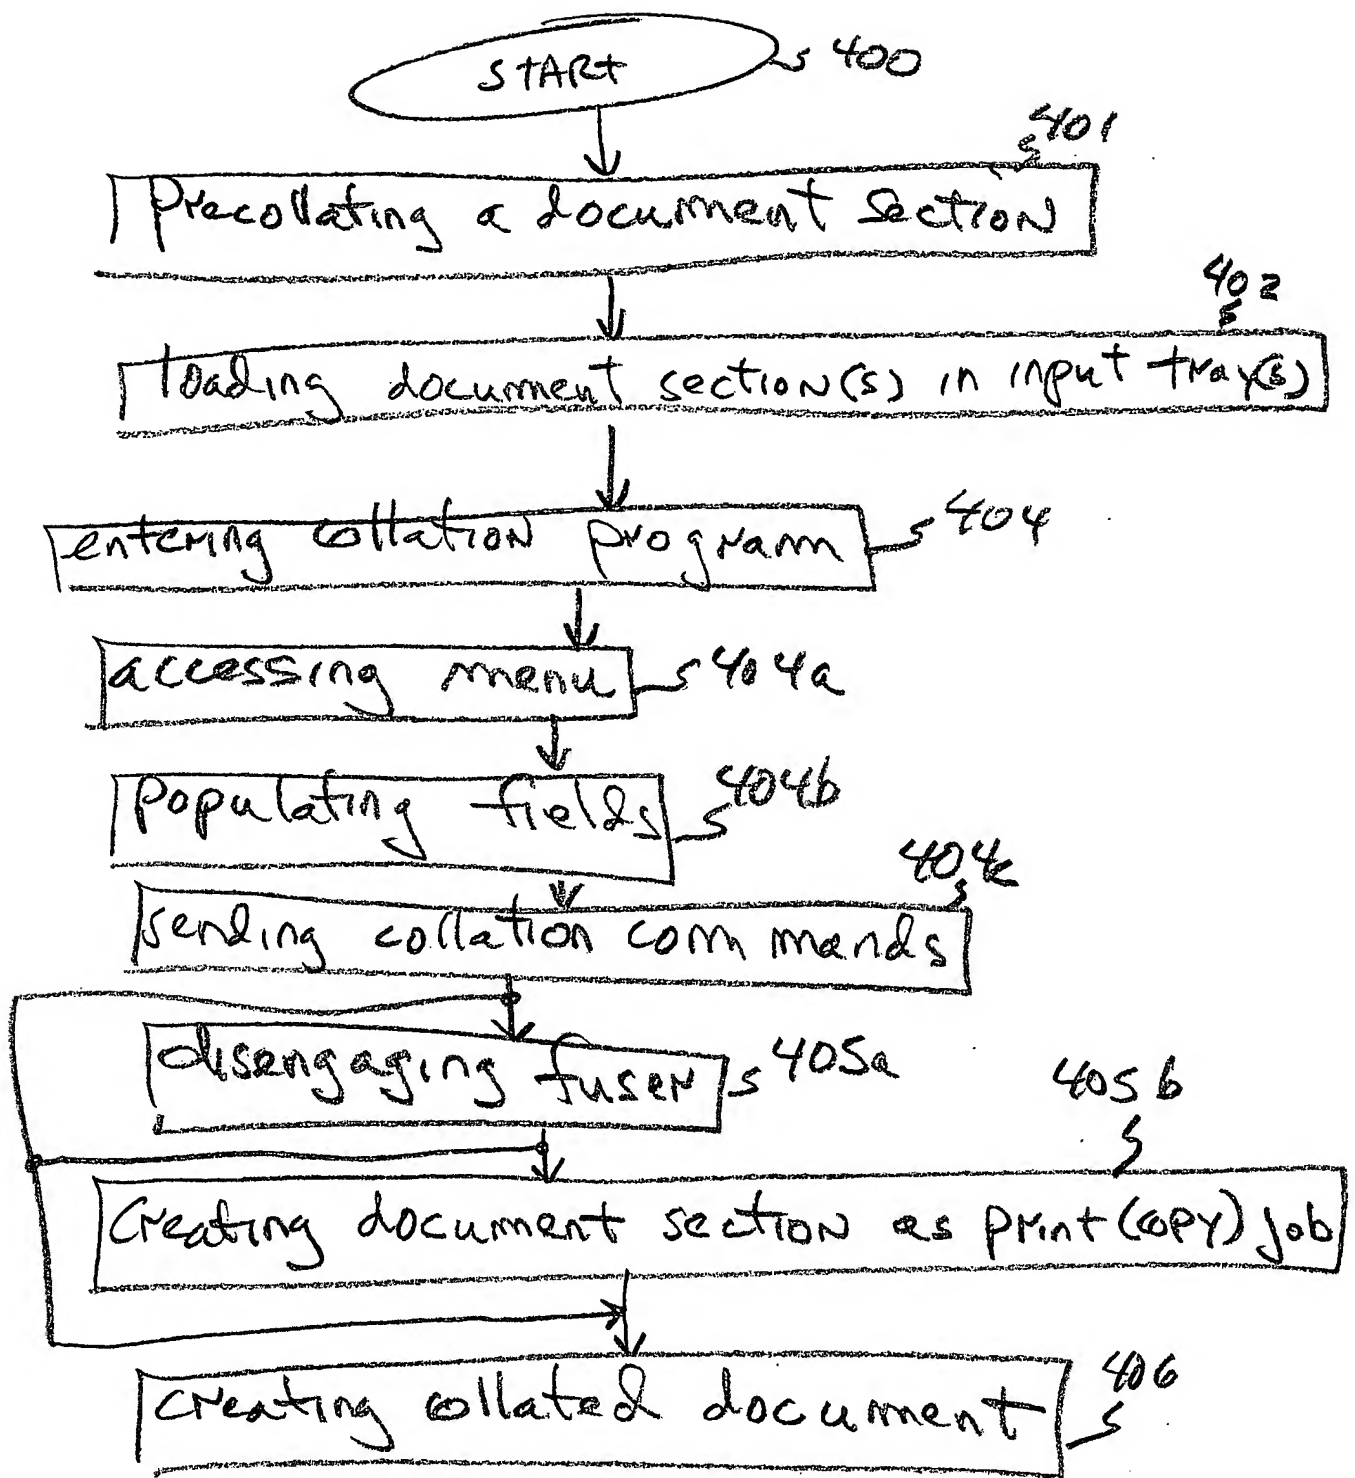 START 400
401
Precollating a document section
402
loading document section(s) in input tray(s)
entering collation program 404
accessing menu 404a
populating fields 404b
404c
sending collation commands
disengaging fuser 405a
405b
Creating document section as print (copy) job
creating collated document 406